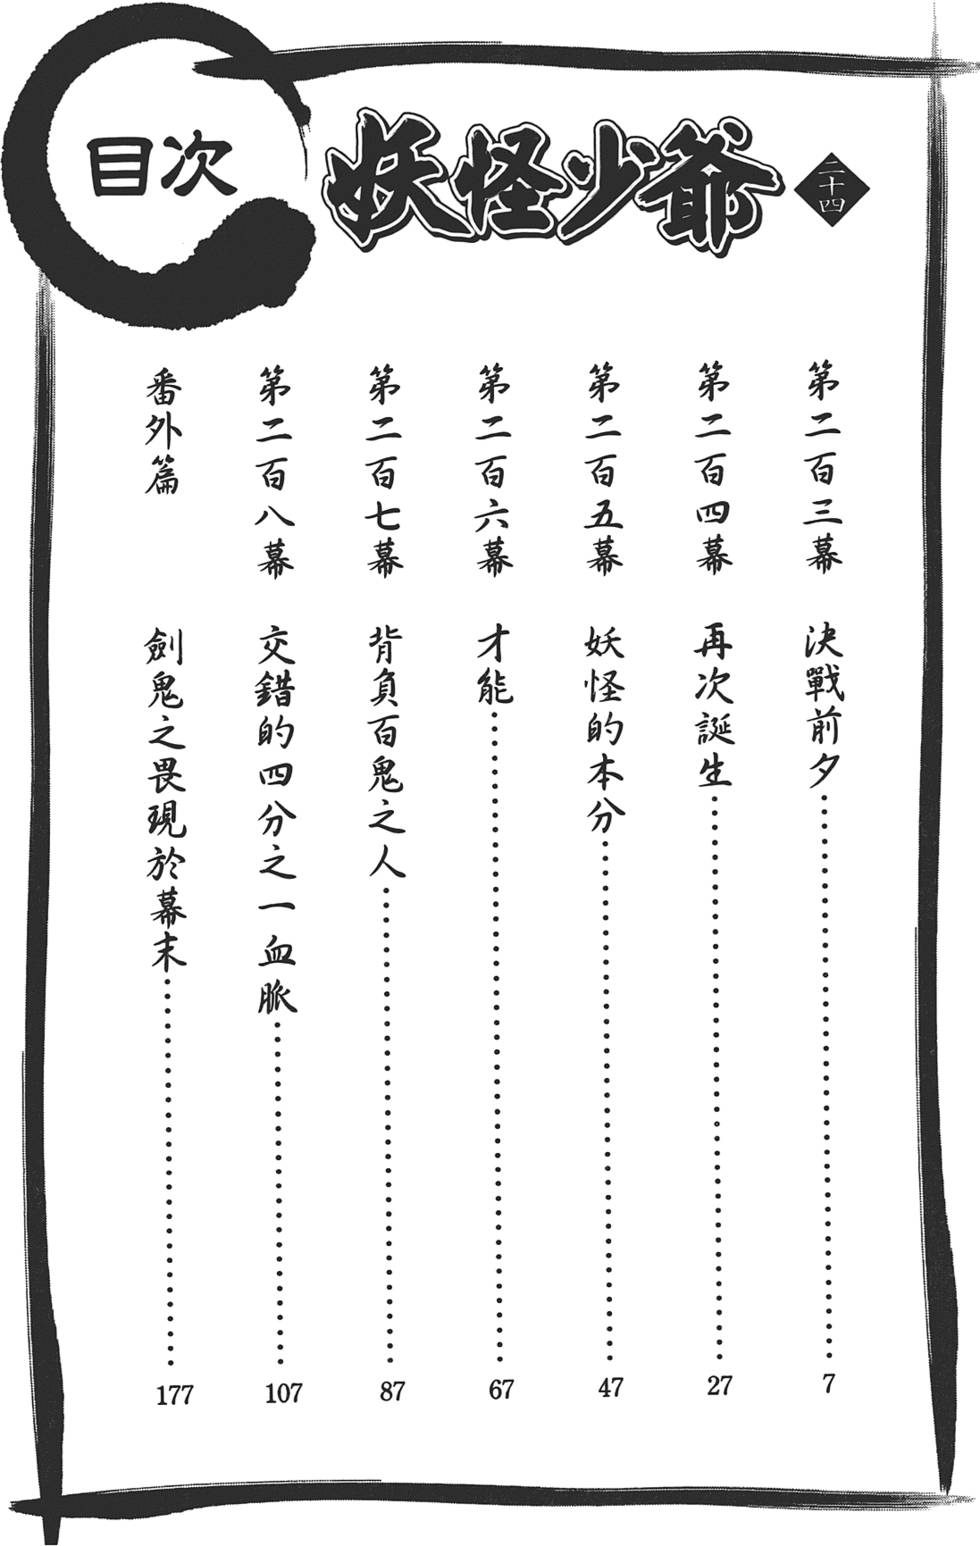 目次
妖怪少爺
二十四
第二百三幕 決戰前夕 7
第二百四幕 再次誕生 27
第二百五幕 妖怪的本分 47
第二百六幕 才能 67
第二百七幕 背負百鬼之人 87
第二百八幕 交錯的四分之一血脈 107
番外篇 劍鬼之畏現於幕末 177